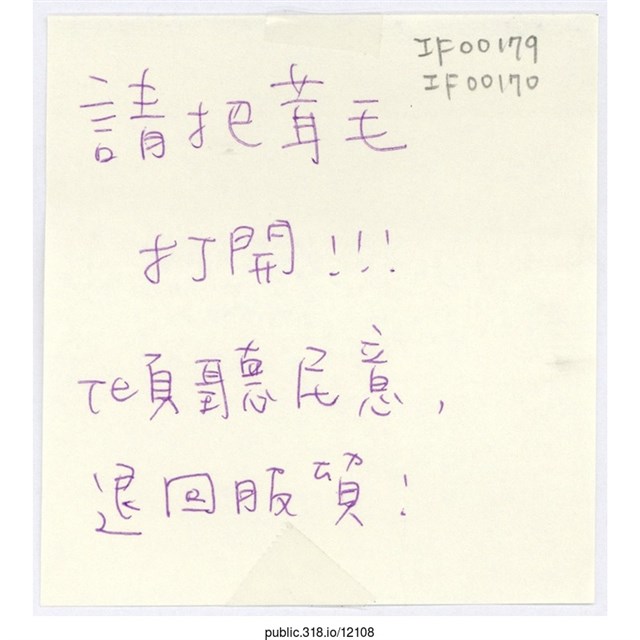 IF00179
IF00170
請把茸毛
打開!!!
傾聽民意,
退回服貿!
public.318.io/12108